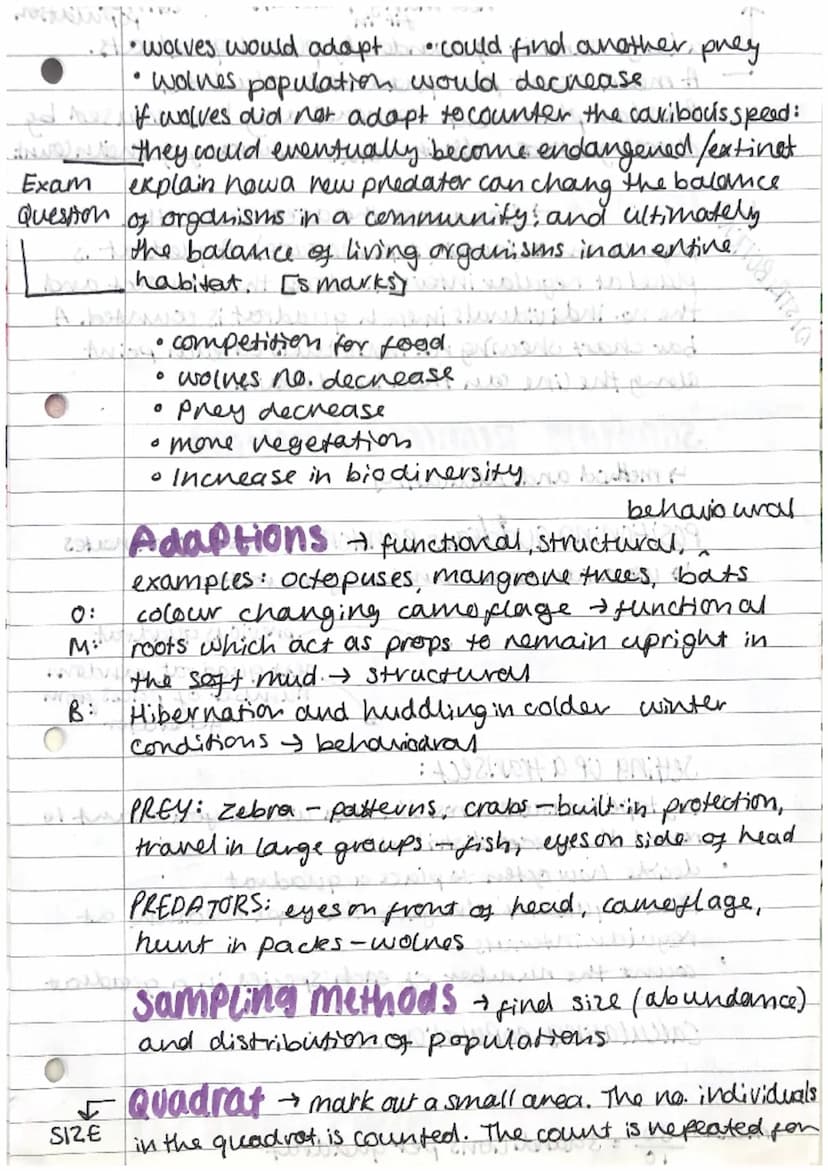 • wolves would adapt • could find another prey
• wolves population would decrease
if wolves did not adapt to counter the caribou's speed:
they could eventually become endangered/extinct
Exam explain how a new predator can chang the balance
Question of organisms in a community; and ultimately
the balance of living organisms in an entire
habitat. [5 marks]
• competition for food
• wolves no. decrease
• Prey decrease
• more vegetation
• Increase in biodiversity
behavioural
Adaptions → functional, structural, ^
examples: octopuses, mangrove trees, bats
O: colour changing cameflage → functional
M: roots which act as props to remain upright in
the soft mud → structural
B: Hibernation and huddling in colder winter
conditions → behavioural
PREY: zebra - patterns, crabs - built-in protection,
travel in large groups - fish, eyes on side of head
PREDATORS: eyes on front of head, cameflage,
hunt in packs - wolves
Sampling methods → find size (abundance)
and distribution of populations
Quadrat → mark out a small area. The no. individuals
SIZE in the quadrat is counted. The count is repeated for